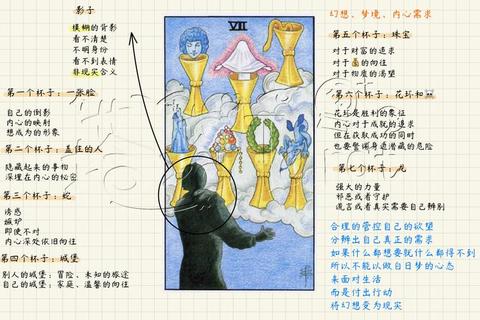 影子
模糊的背影
看不清楚
不明身份
看不到表情
非现实含义
第一个杯子：一张脸
自己的倒影
内心的映射
想成为的形象
第二个杯子：盖住的人
隐藏起来的事物
深埋在内心的秘密
第三个杯子：蛇
诱惑
嫉妒
即使不对
内心深处依旧向往
第四个杯子：城堡
别人的城堡：冒险、未知的旅途
自己的城堡：家庭、温馨的向往
VII
幻想、梦境、内心需求
第五个杯子：珠宝
对于财富的追求
对于的向往
对于物质的渴望
第六个杯子：花环和
花环是胜利的象征
内心对于成就的追求
但在获取成功的同时
也要警惕身边潜藏的危险
第七个杯子：龙
强大的力量
邪恶或者守护
谎言或者真实需要自己辨别
合理的管控自己的欲望
分辨出自己真正的需求
如果什么都想要就什么都得不到
所以不能以做白日梦的心态
来面对生活
而是付出行动
将幻想变为现实